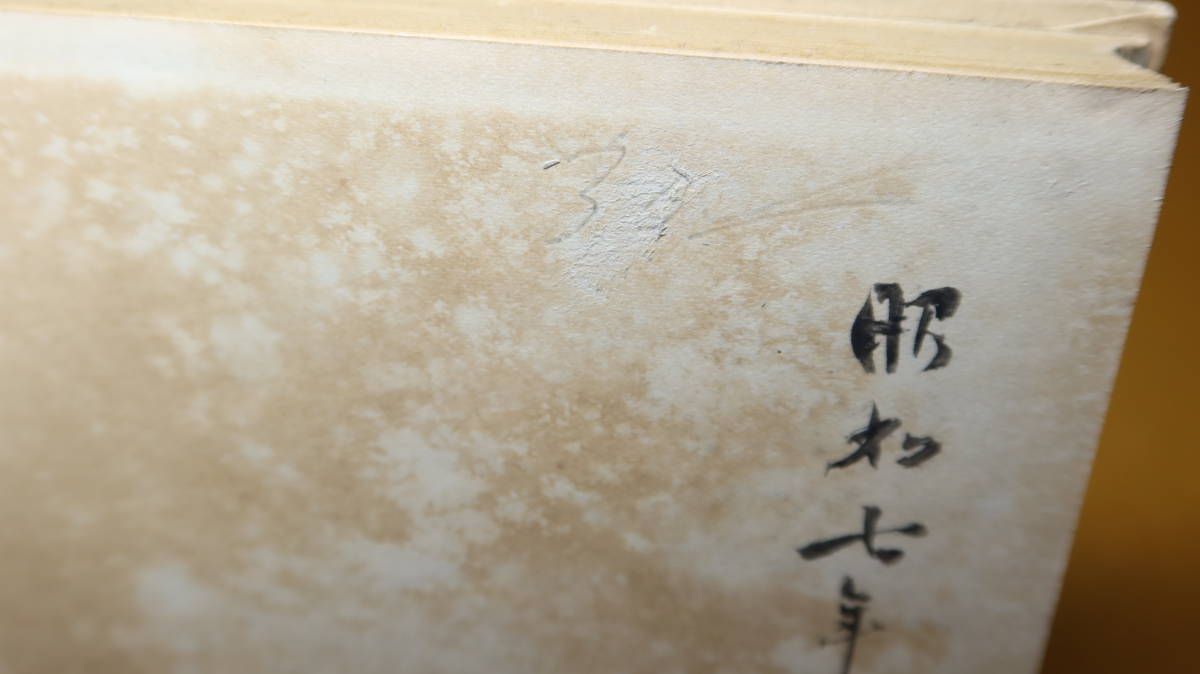 昭和七年